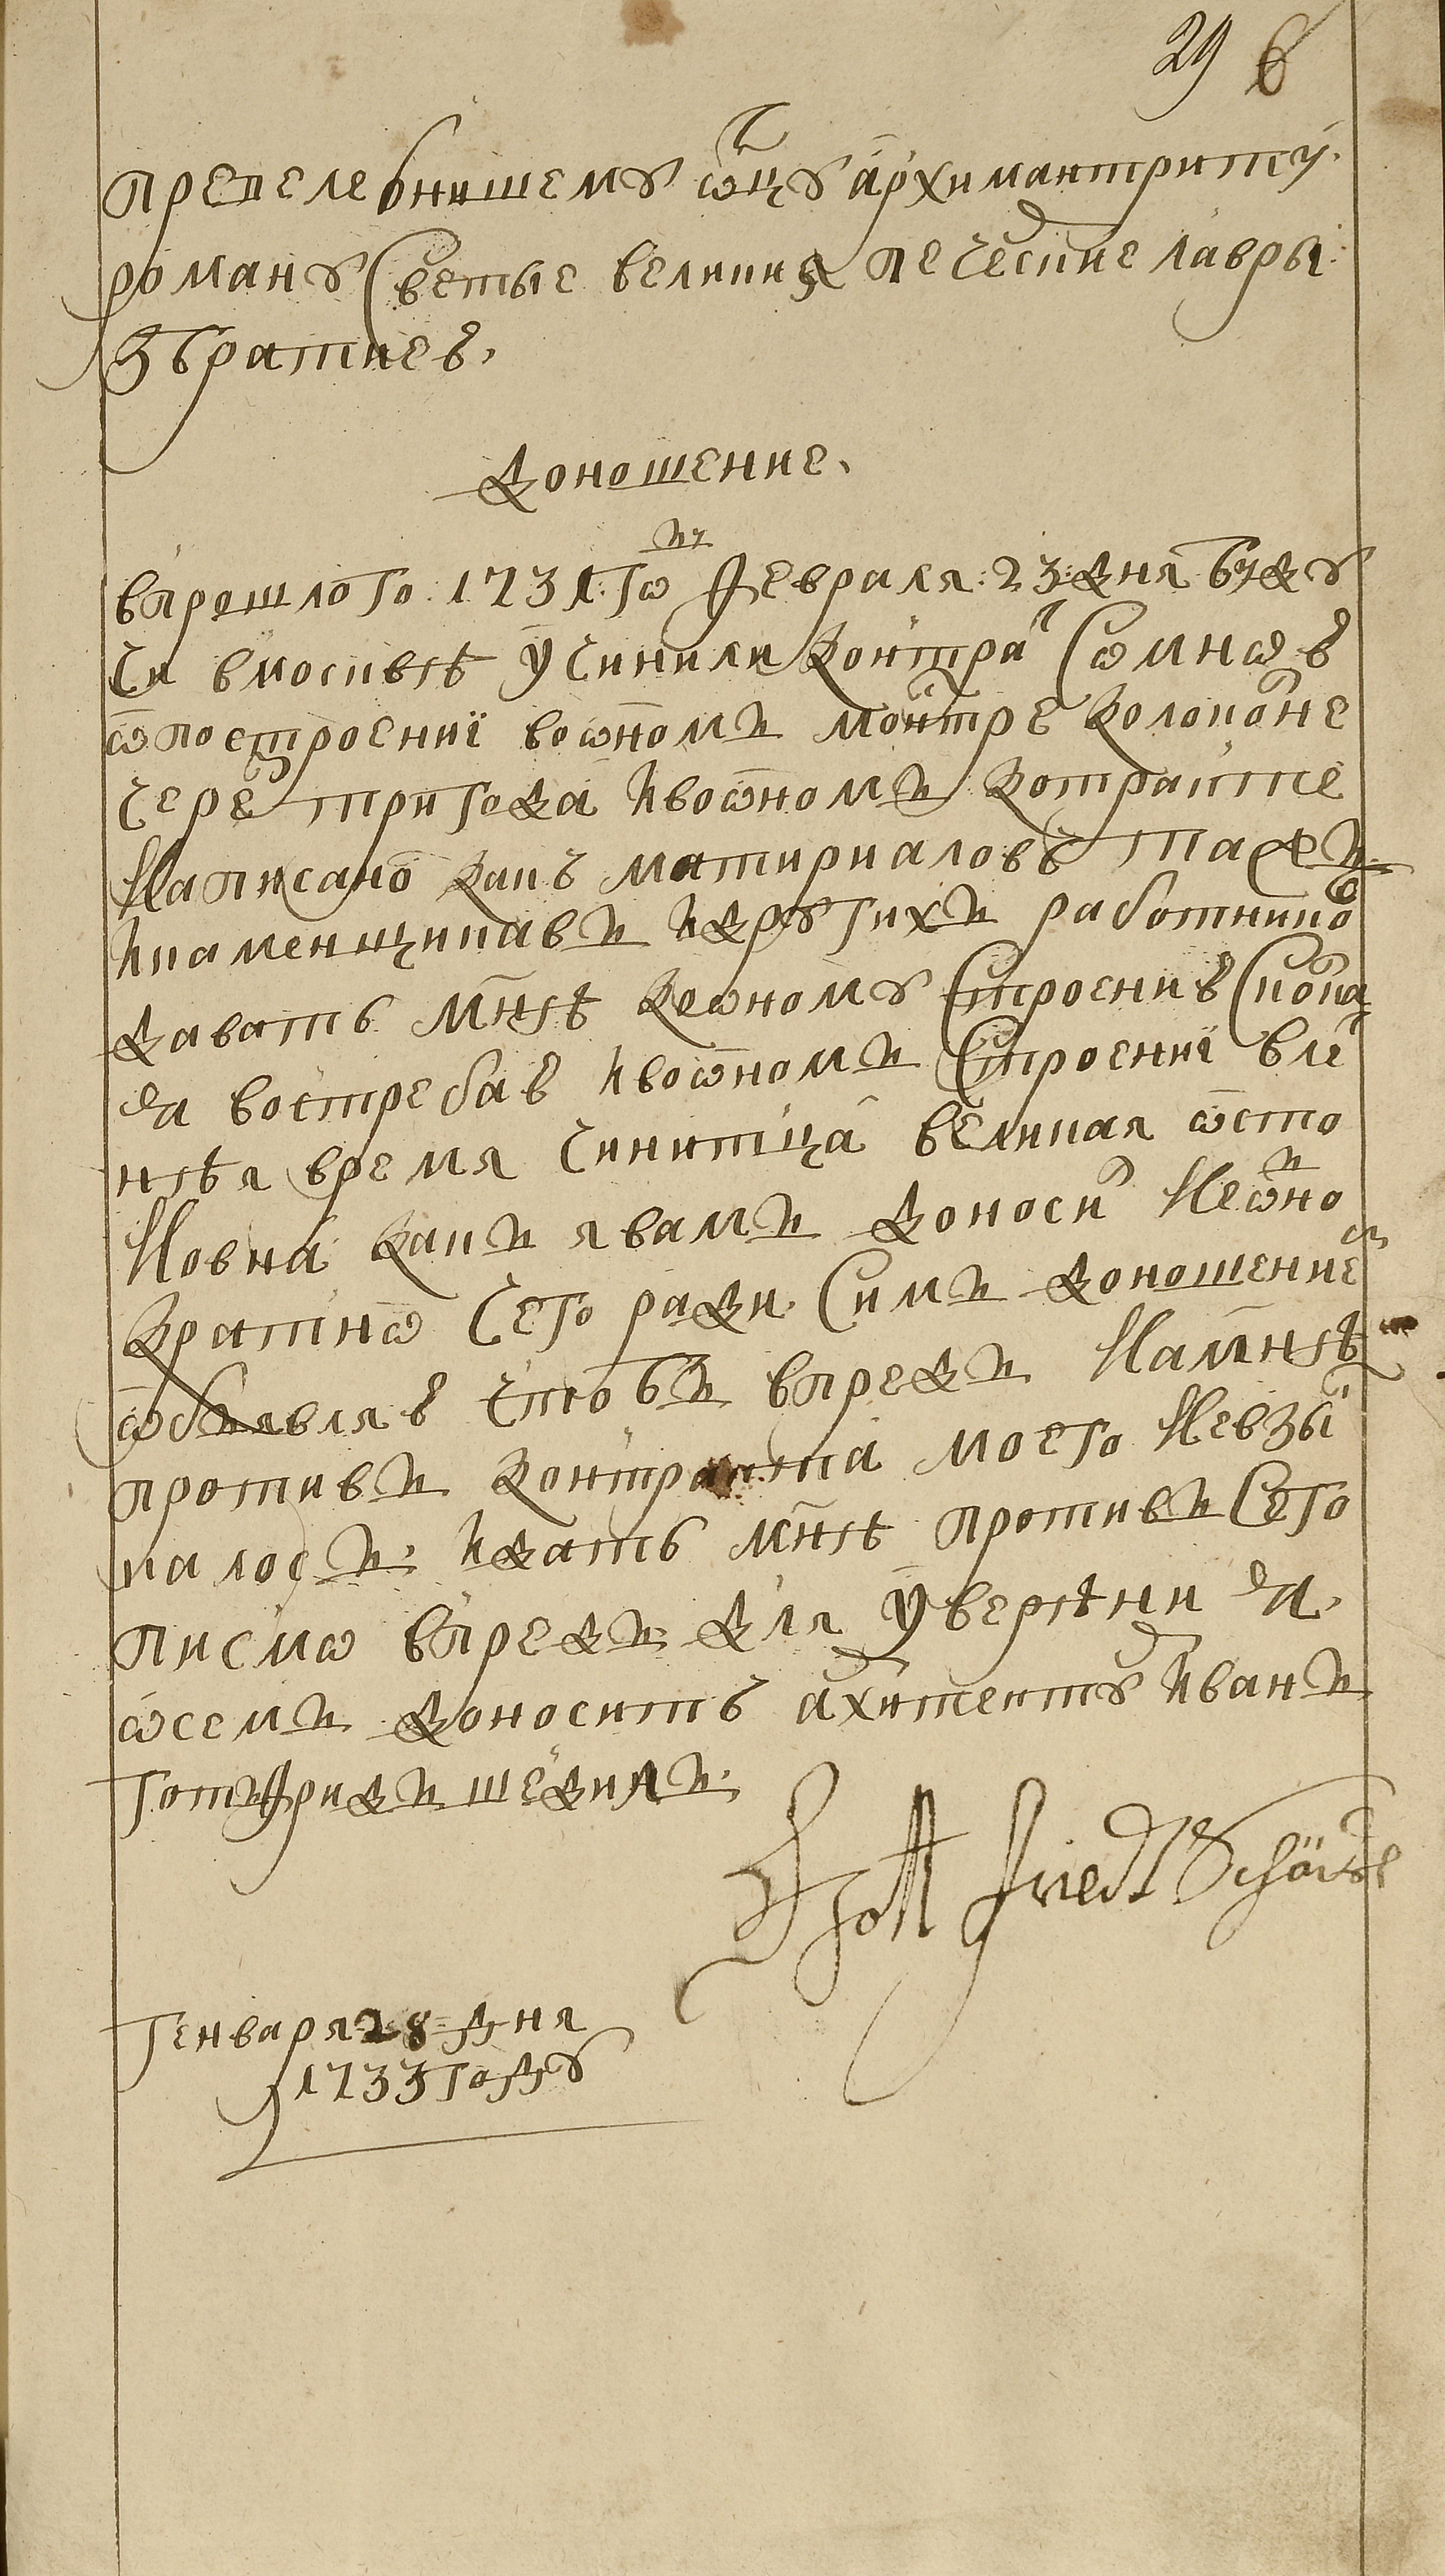 29 6
препелебнишему ѿцу архимантриту.
роману светые великия печеские лавры
з братиею.
доношение.
в прошлого 1731 го февраля: 23: дня будȣ
чи в москвѣ учинили контра с мною
ѡ построениї во ѡном мѡнтре колоконе
чере три года и во ѡномъ контракте
написано какъ матириаловъ такжъ
и каменщикавъ и другихъ работнико
давать мнѣ ко ѡному строению скол
да востребаю и во ѡномъ строениї в ле
нѣя время чинитца великая ѡсто
новка какъ я вамъ доноси неѡдно
кратнѡ чего ради симъ доношение
ѡбъявляю чтобъ впредъ на мнѣ
противъ контракта моего невзы
калосъ. и дать мнѣ противъ сего
писмѡ впредъ для увѣрѣни я.
ѡ семъ доноситъ ахитектȣ иванъ
готъфридъ шеделъ.
Gottfriedt Schädel
генваря 28 дня
1733 годȣ